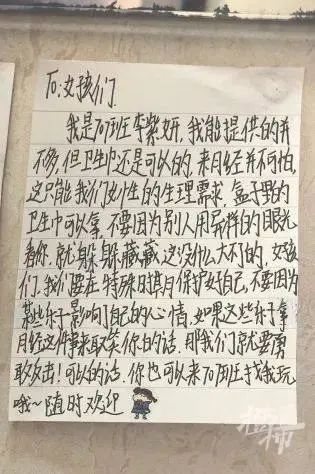 To:女孩们
我是701班李紫妍.我能提供的并
不多,但卫生巾还是可以的,来月经并不可怕,
这只能我们女生的生理需求,盒子里的
卫生巾可以拿,不要因为别人用异样的眼光
看你,就躲躲藏藏,这没什么大不了的,女孩
们.我们要在特殊时期保护好自己,不要因为
某些乐子影响了自己的心情,如果这些乐子拿
月经这件事来取笑你的话,那我们就要勇
敢反击!可以的话,你也可以来701班找我玩
哦~随时欢迎